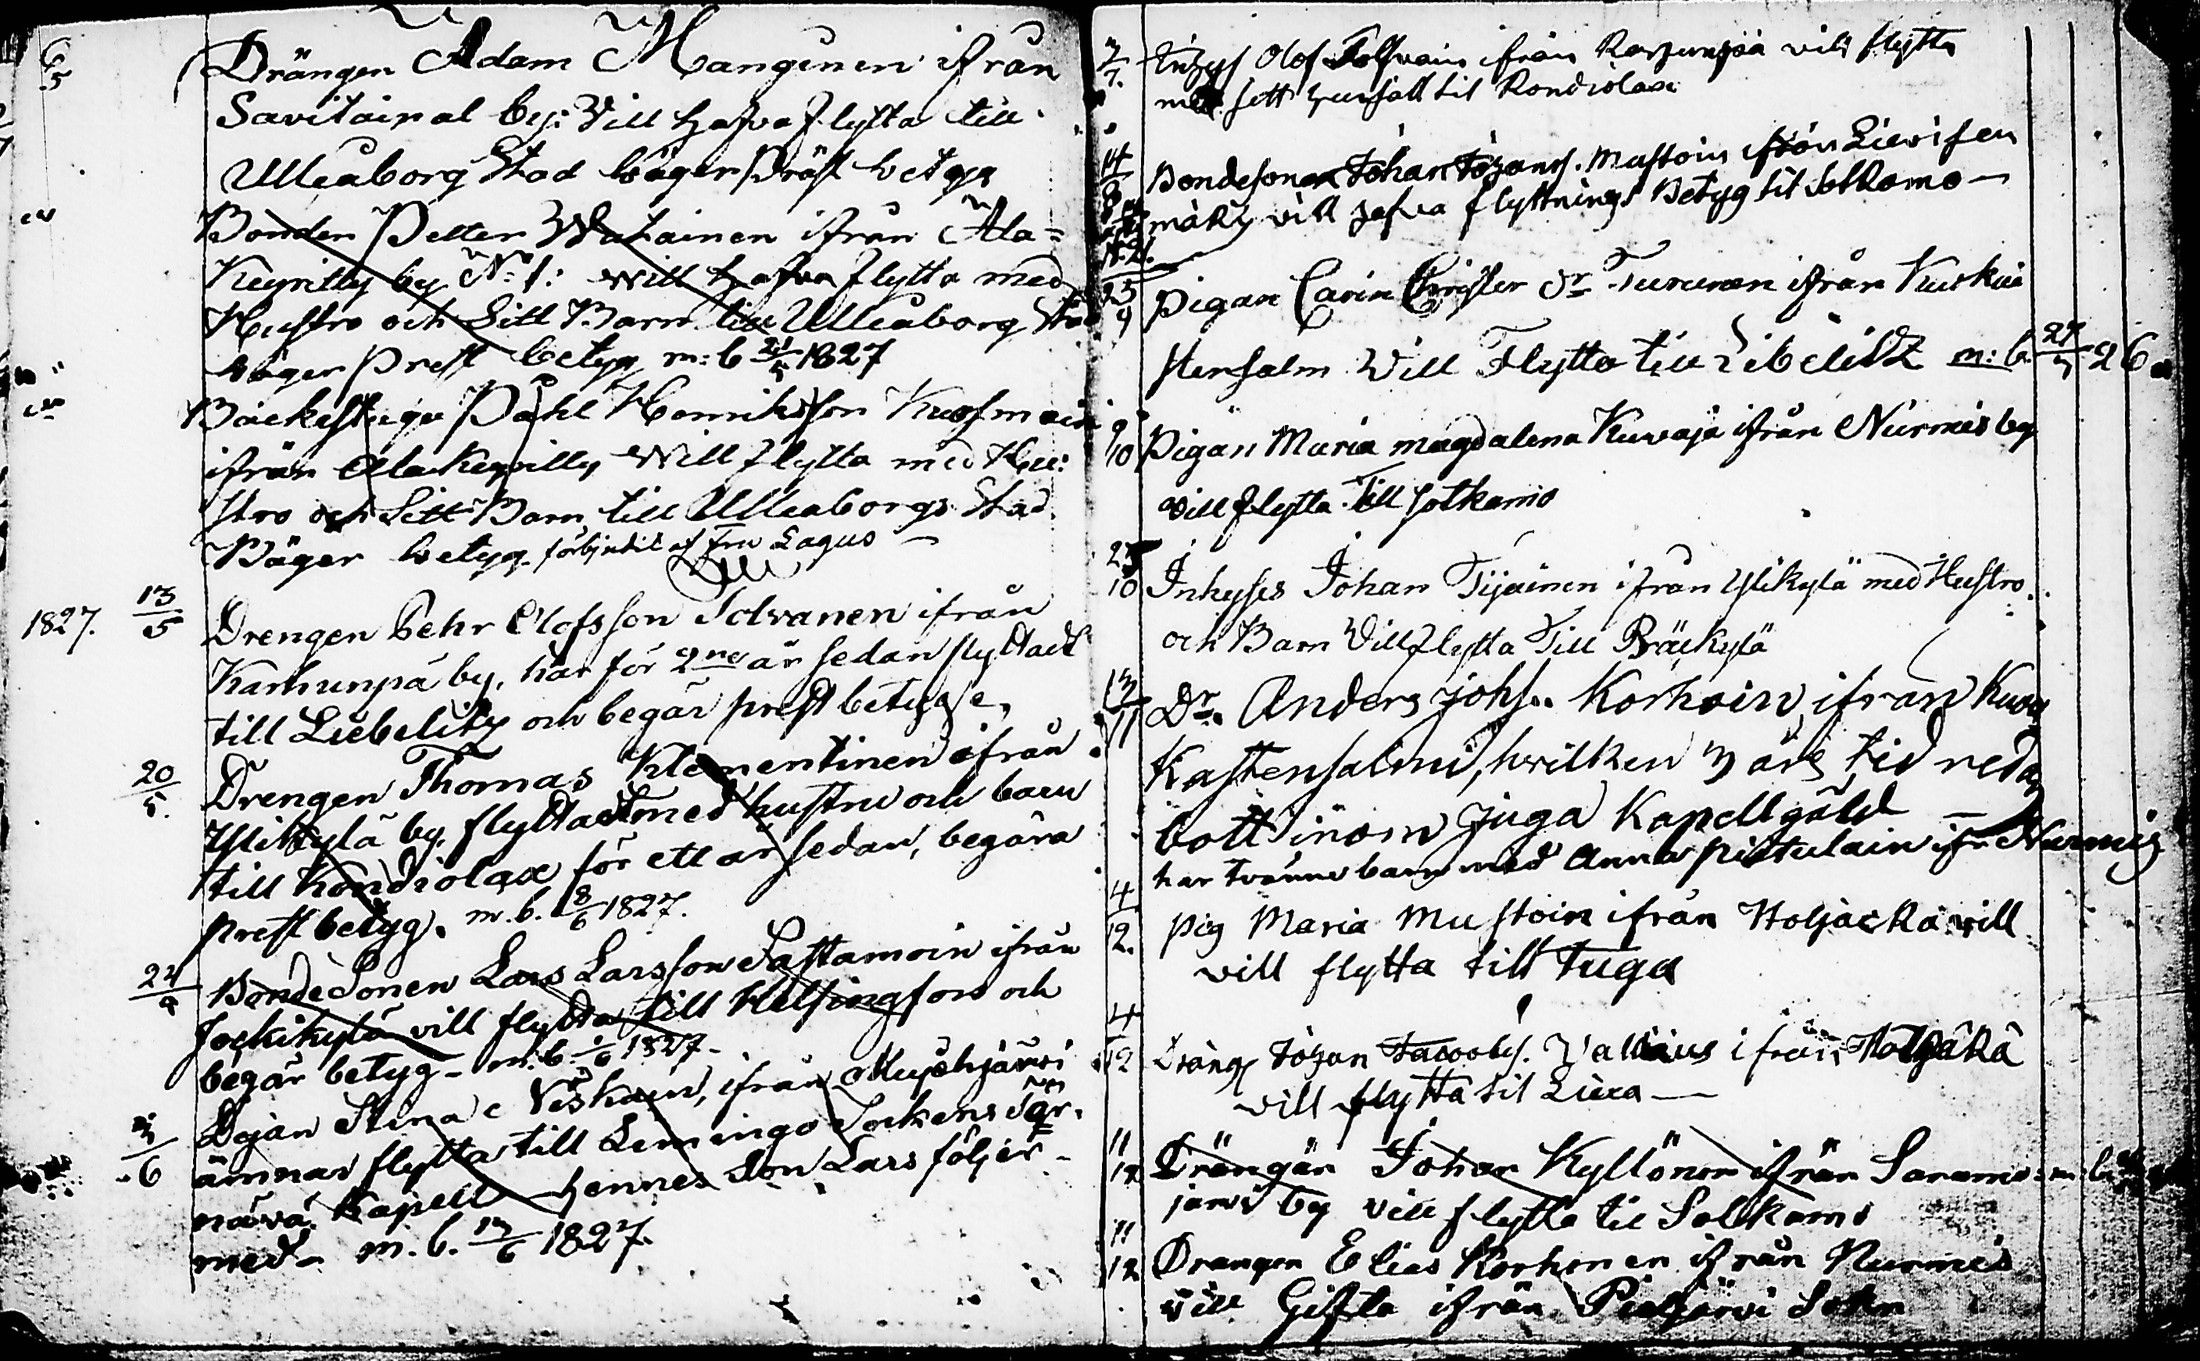 6/5 Drängen Adam Manginen ifrån
Savitaipal by: Vill hafva flytta till
Uleåborg Stad bäger Präst betyg
Bonden Petter Watainen ifrån Ala=
Keyritty by N:o 1: will hafva flytta med
Hustro och Sitt Barn till Uleåborg Stad
bäger Prest betyg m: b 21/5 1827
Backestugu Påhl Henriksson
ifrån Alakeyritty Will flytta med Hu:
stro och Sitt Barn till Uleåborgs Stad
Bäger betyg. förbjudit af Lagus
1827. 13/5 Drengen Pehr Olofsson Tolvanen ifrån
Karhunpä by, har för 2ne år sedan flyttadt
till Liebelitz och begär prest betyg,
20/5. Drengen Thomas Klementinen ifrån
Ylikylä by, flyttadt med hustru och barn
till Kondiolax för ett år sedan, begära
prest betyg. m. b. 8/6 1827.
BondeSonen Lars Larsson Sattamoin ifrån
Jockikylä vill flytta till Helsingfors och
begär betyg - m. b 1827 -
3/6 Stina ifrån
ämnar flytta till Limingo Sockens
Kapell hennes Son Lars följer
med - m. b. 13/6 1827.
Olof Tolfvain ifrån vill flytta
med sitt till Kondiolax
Bondesonen Johan Johans. Mustoin ifrån Lieris en
mäky vill hafva flyttnings Betyg til Sotkamo -
25/9 Pigan Carin Christer Dr Turunen ifrån Kuokka
stensalm Vill Flytta till Libelitz m: b. 26
9/10 Pigan Maria magdalena Kuvaja ifrån Nurmis by
vill flytta Till Sotkamo
25/10 Inhyses Johan Tijainen ifrån Ylikylä med Hustro
och Barn Vill flytta Till Bräkylä
13/11 Dr. Anders Johs. Korhoin, ifrån Kuok
Kastensalmi, hvilken 3 års tid redan
bott inom Juga Kapellgäld -
har tvänne barn med Anna Pistulain ifr Nurmis
4/12. pig Maria Mustoin ifrån Höljäckä vill
vill flytta till Juga
4/12 Dräng Johan Jacobs. Vallius ifrån Höljäkä
vill flytta til
11/12 Drängän Johan Kyllönen ifrån Saramo
järvi by vill flytta til Sotkamo
11/12 Drangen Elias Korhonen ifrån Nurmés
vill Gifta ifrån Pieljärvi Sokn